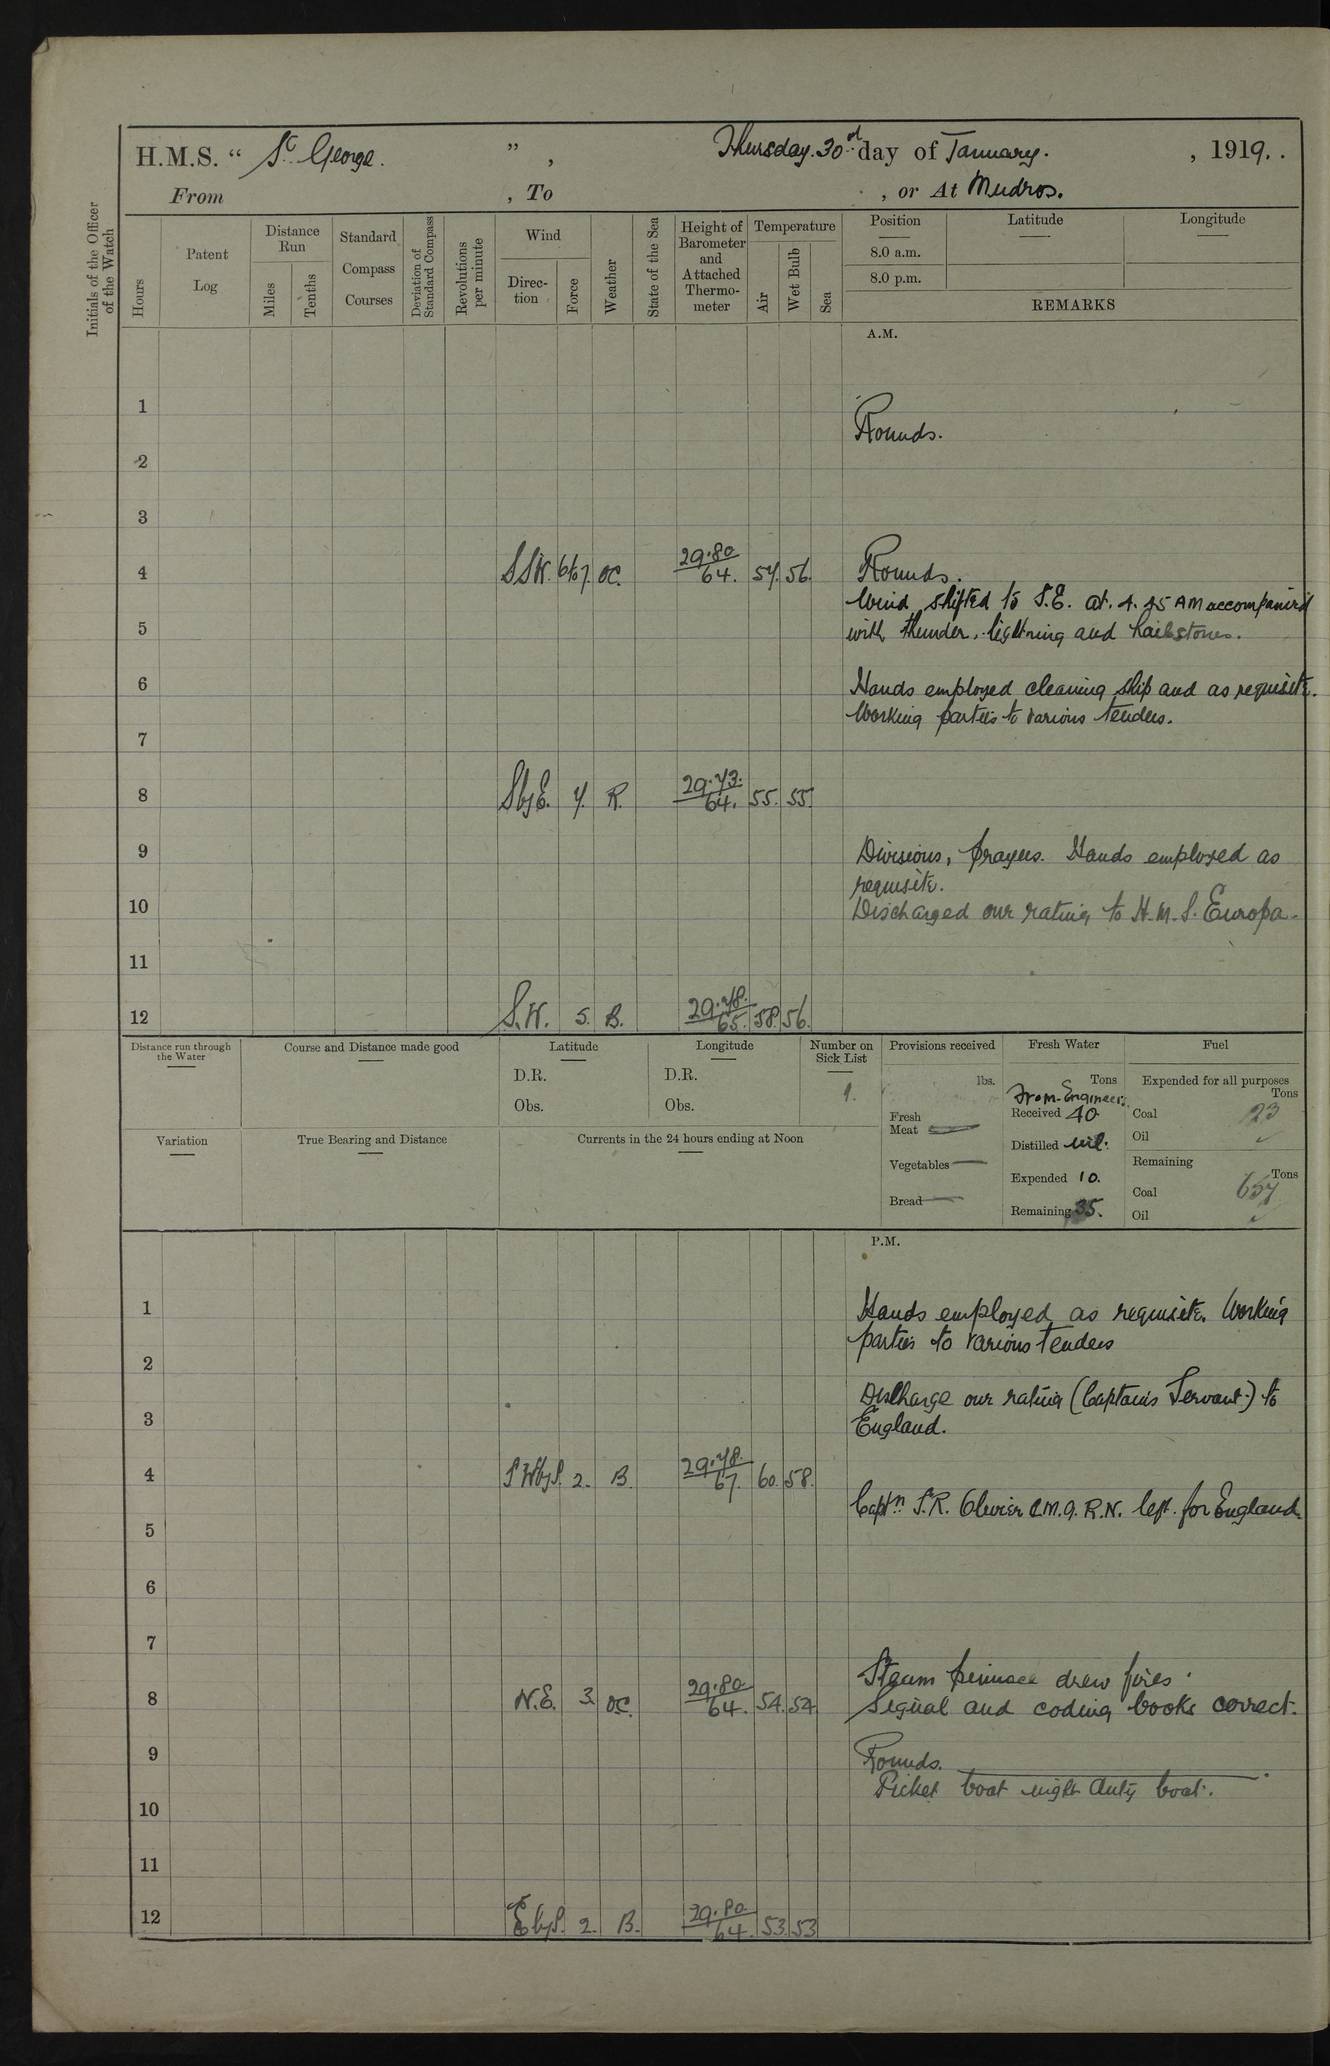 H.M.S. “ St George. ” , Thursday. 30th day of January. , 1919. .
From , To , or At Mudros.
Initials of the Officer of the Watch
Hours
Patent Log
Distance Run
Miles
Tenths
Standard Compass Courses
Deviation of Standard Compass
Revolutions per minute
Wind
Direction
Force
Weather
State of the Sea
Height of Barometer and Attached Thermometer
Temperature
Air
Wet Bulb
Sea
Position Latitude Longitude
8.0 a.m.
8.0 p.m.
REMARKS
A.M.
1
Rounds.
2
3
4 SSW. 6to7. OC. 29.80 64. 57. 56. Rounds.
Wind shifted to S.E. at. 4.45 AM accompanied
5 with thunder, lightning and hailstones.
6 Hands employed cleaning ship and as requisite.
Working parties to various tenders.
7
8 SbyE. 7. R. 29.73. 64. 55. 55.
9 Divisions, prayers. Hands employed as
requisite.
10 Discharged our rating to H.M.S. Europa.
11
12 S.W. 5. B. 29.78. 65. 58. 56.
Distance run through the Water
Course and Distance made good
Latitude
D.R.
Obs.
Longitude
D.R.
Obs.
Number on Sick List
9.
Provisions received
lbs.
Fresh Meat —
Vegetables —
Bread —
Fresh Water
Tons
From Engineer:
Received 40
Distilled nil.
Expended 10.
Remaining 35.
Fuel
Expended for all purposes
Tons
Coal 23
Oil ✓
Remaining
Tons
Coal 657
Oil ✓
Variation
True Bearing and Distance
Currents in the 24 hours ending at Noon
P.M.
1 Hands employed as requisite. Working
parties to various tenders
2
Discharge our rating (Captain's Servant) to
3 England.
4 SWbyS. 2. B. 29.78. 67. 60. 58.
Captn. S.R. Olivier C.M.G. R.N. left for England.
5
6
7
Steam pinnace drew fires.
8 N.E. 3. OC. 29.80 64. 54. 54. Signal and coding books correct.
9 Rounds.
Picket boat night duty boat.
10
11
12 EbyS. 2. B. 29.80. 64. 53. 53